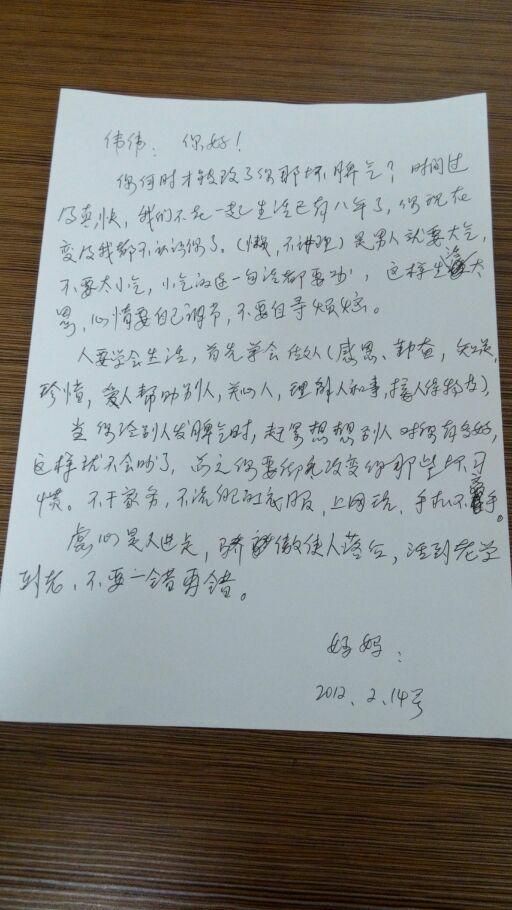 伟伟：你好！
你何时才能改了你那坏脾气？时间过
的真快，我们不在一起生活已有八年了，你现在
变的我都不认识你了。（懒，不讲理）是男人就要大气，
不要太小气，小气的连一句话都要吵，这样生活太
累，心情要自己调节，不要自寻烦恼。
人要学会生活，首先学会做人（感恩、勤奋，知足，
珍惜，爱人帮助别人，关心人，理解人和事，接人待物方），
当你给别人发脾气时，赶紧想想别人对你有多好，
这样就不会吵了，总之你要彻底改变你那些坏习
惯。不干家务，不洗自己的衣服，上网玩，手机不离手。
虚心是人进步，骄傲使人落后，活到老学
到老，不要一错再错。
妈妈：
2012、2、14号